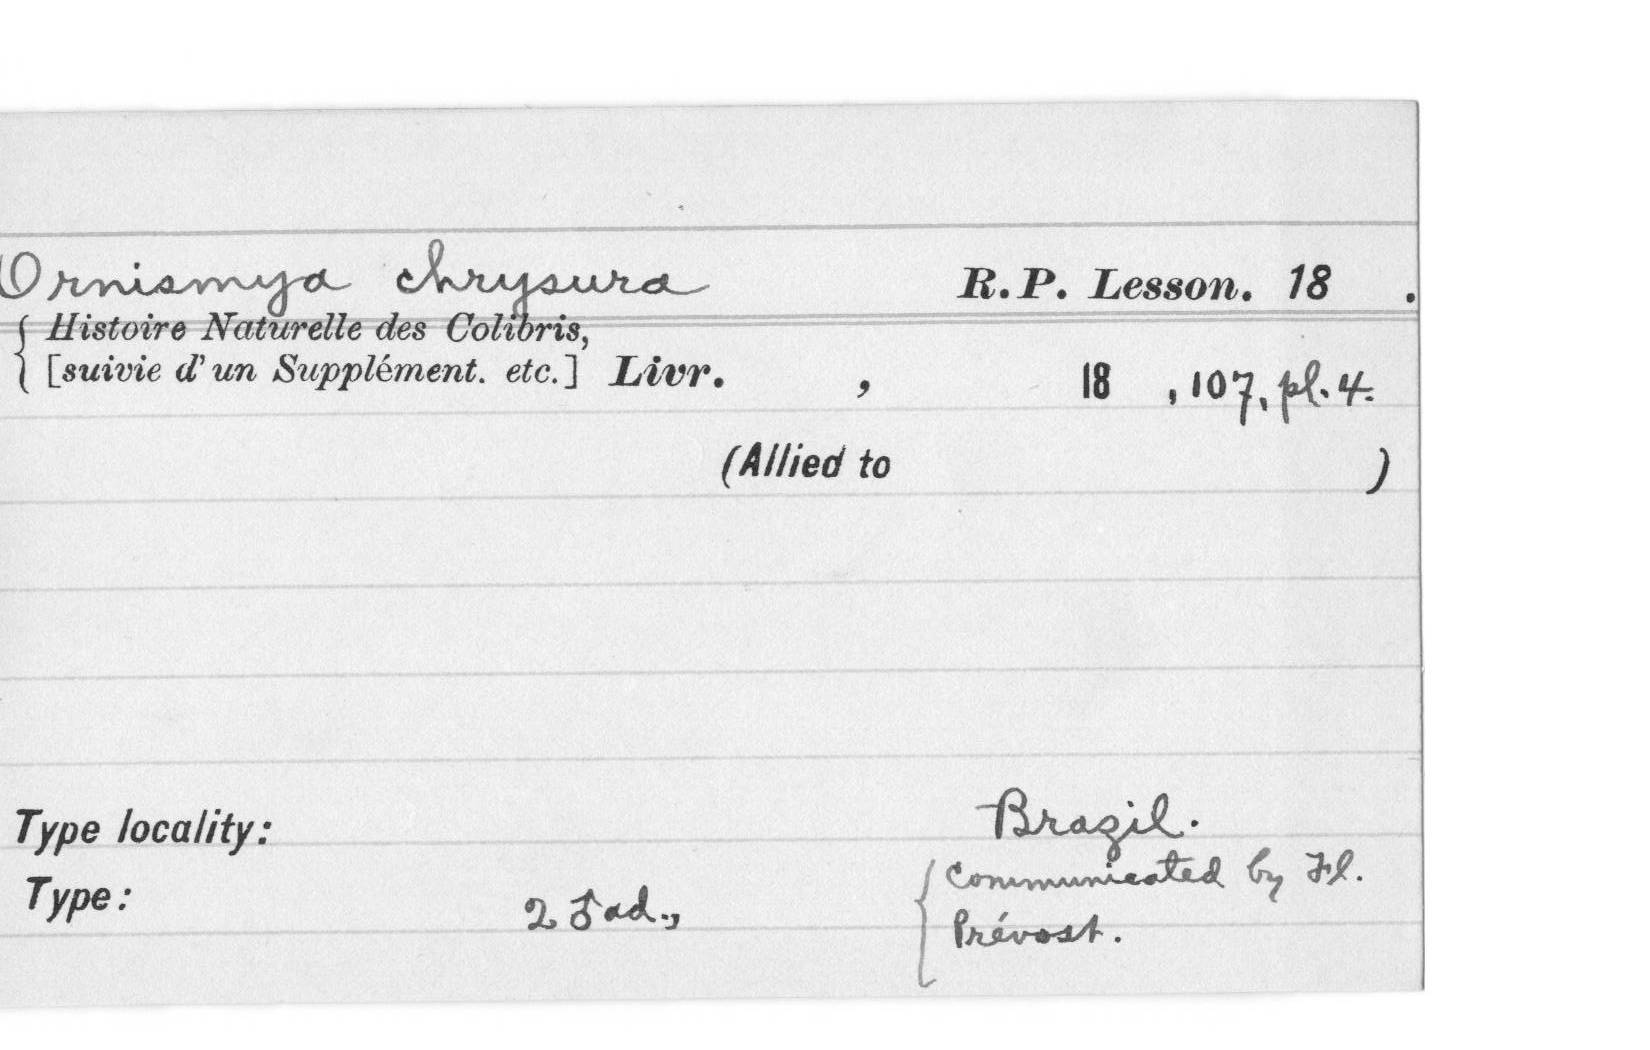 Ornismya chrysura R.P. Lesson. 18 .
{ Histoire Naturelle des Colibris,
[suivie d'un Supplément. etc.] Livr. , 18 , 107, pl. 4.
(Allied to )
Type locality: Brazil.
Type: 2 ♂ ad., { Communicated by Fl.
Prévost.